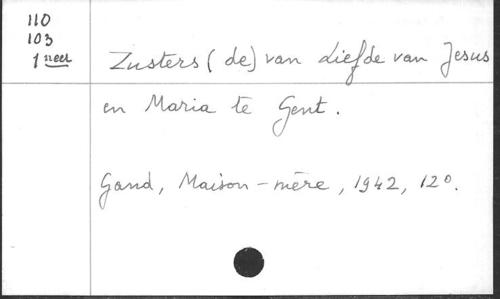 110
103
1 neel
Zusters (de) van Liefde van Jesus
en Maria te Gent.
Gand, Maison-mère, 1942, 12°.